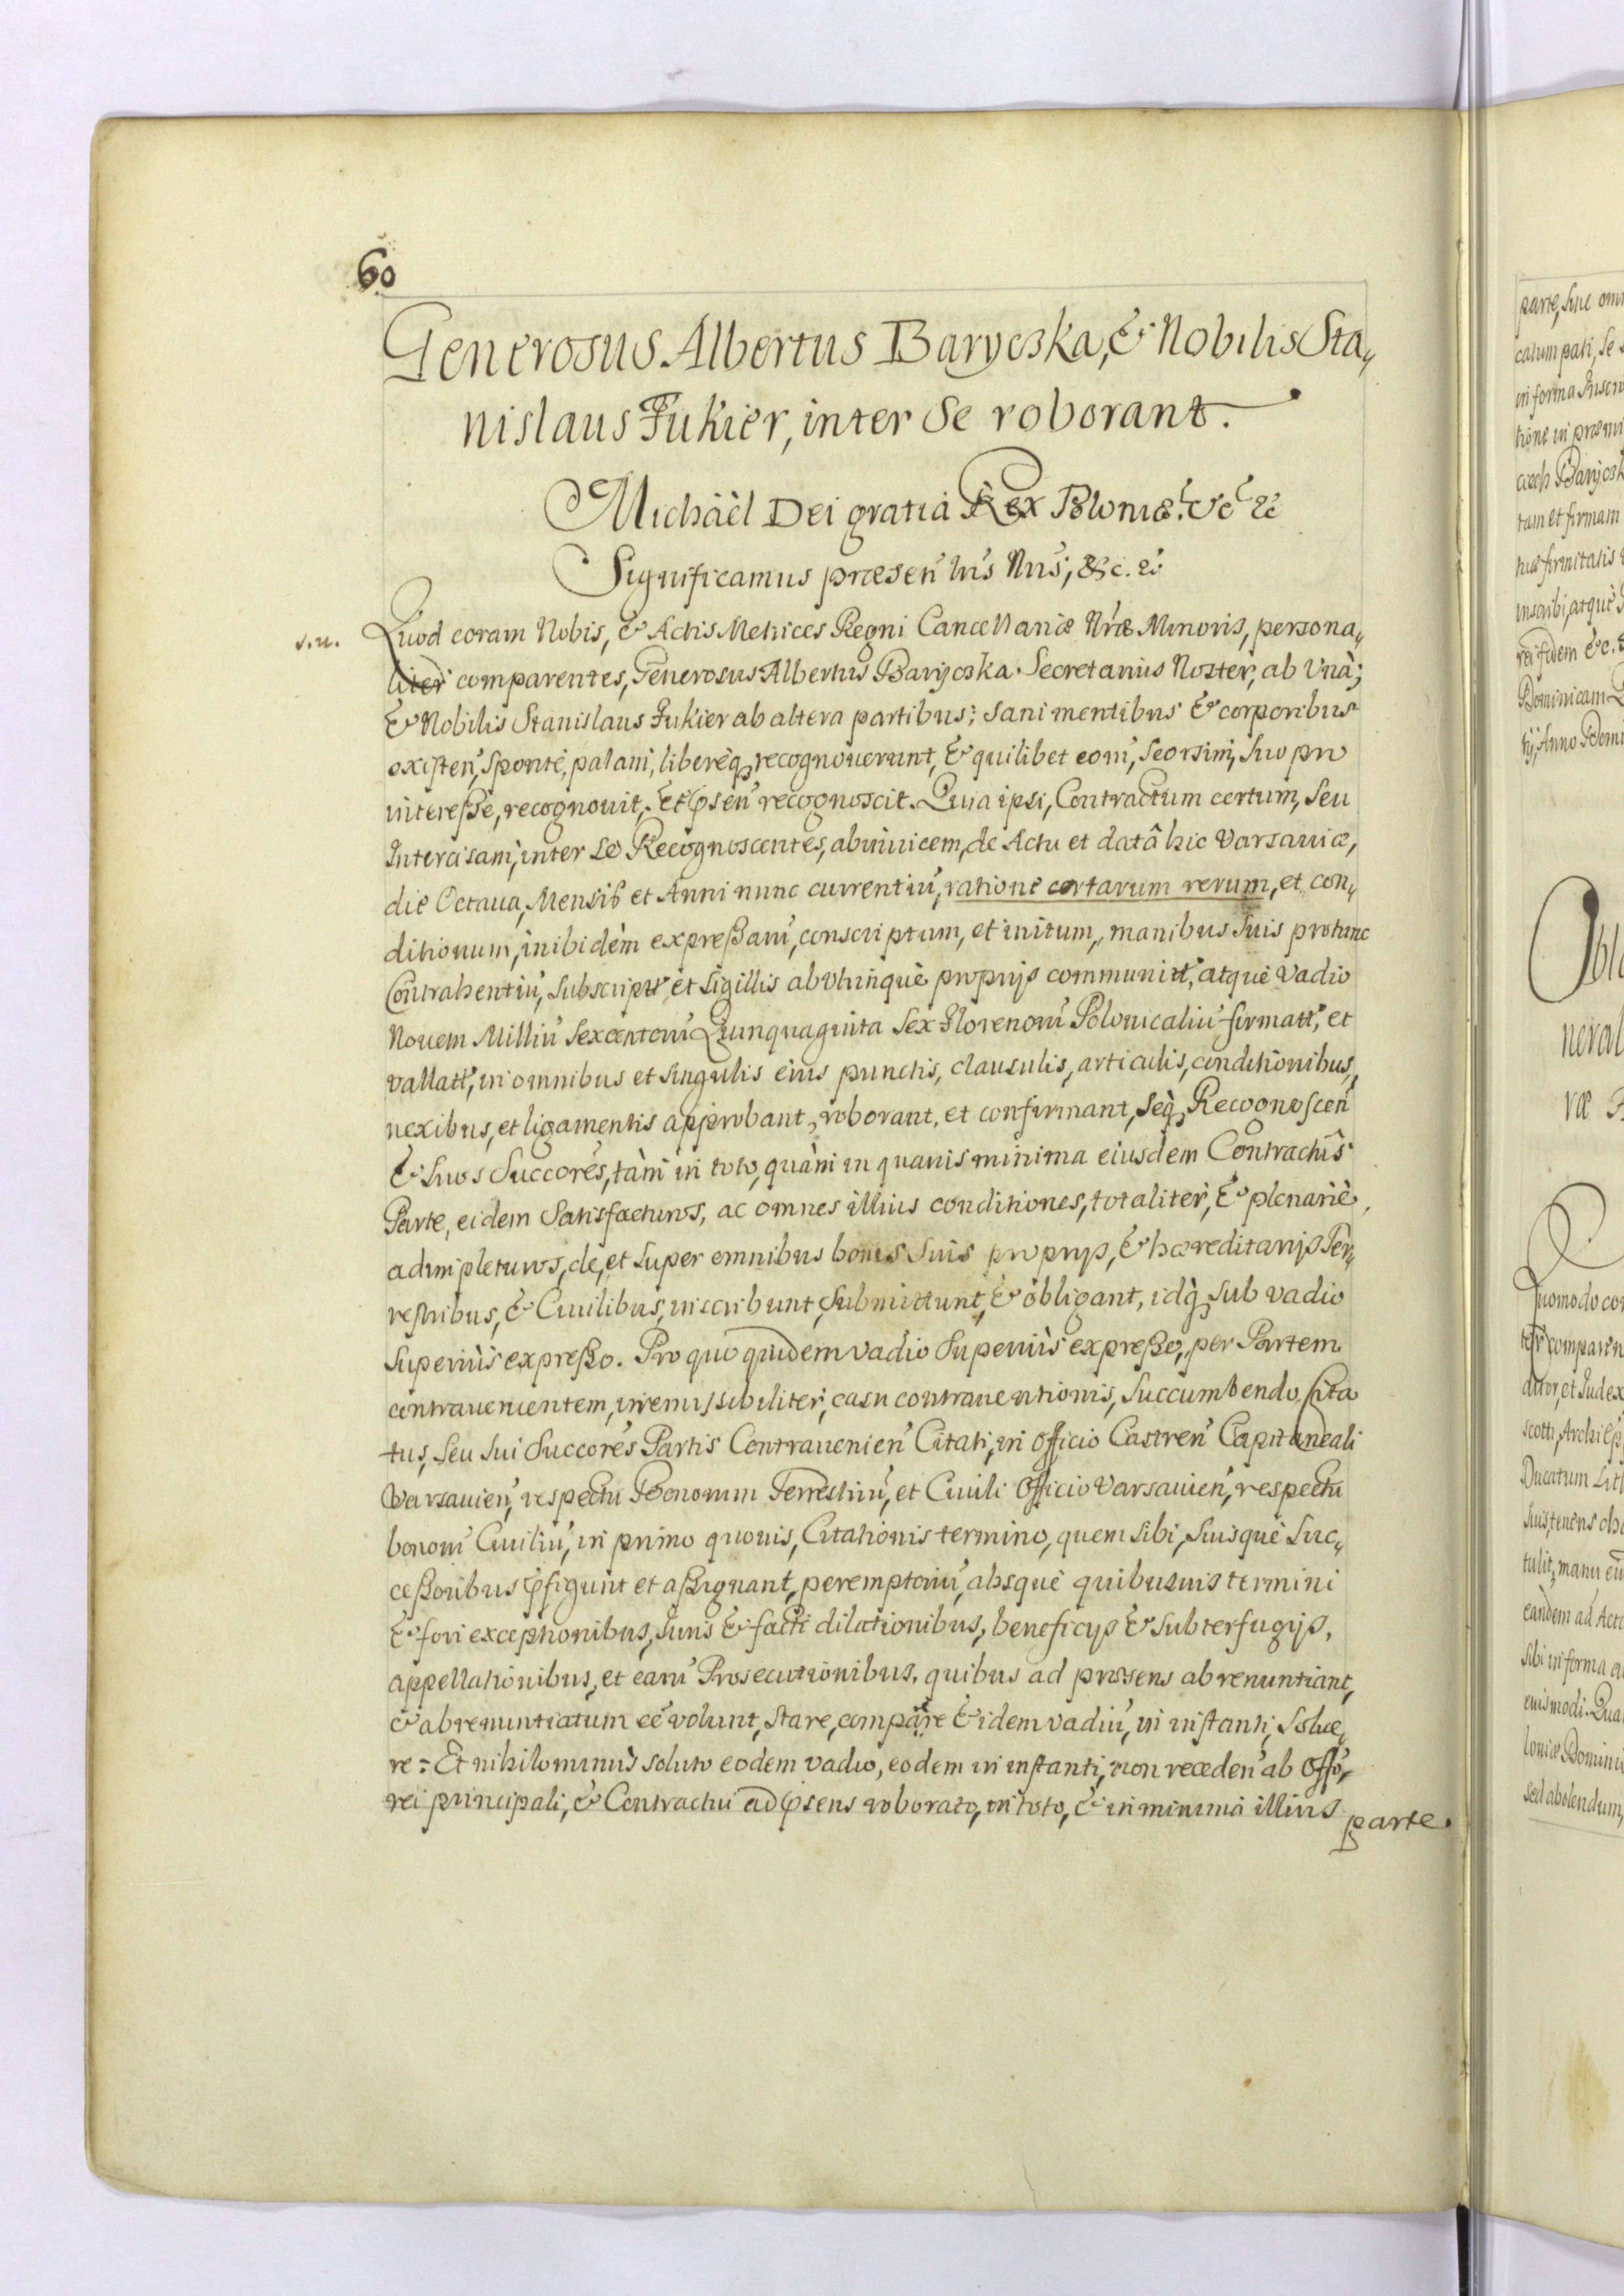 60
Generosus Albertus Barycska, & Nobilis Sta„
nislaus Fukier, inter Se roborant.
Michäèl Dei gratia Rex Poloniæ. &c &c
Significamus præsen̄ lris Nris, &c. &c
s.u.
Quod coram Nobis, & Actis Metrices Regni Cancellariæ Nr̄æ Minoris, persona„
liter comparentes, Generosus Albertus Barycska Secretarius Noster, ab Vnà;
& Nobilis Stanislaus Fukier ab altera partibus; sani mentibus & corporibus
existen̄, Sponte, palam, libereq3 recognoverunt, & quilibet eorū, Seorsim, Suo pro
interesse, recognouit, et p̄sen̄ recognoscit. Quia ipsi, Contractum certum, Seu
Intercisam, inter se Recognoscentes, abinuicem, de Actu et datâ hic Varsauiæ,
die Octaua, Mensis et Anni nunc currentiū, ratione certarum rerum, et con„
ditionum, inibidèm expressarū, conscriptum, et initum, manibus Suis protunc
Contrahentiū, Subscriptt̄, et Sigillis abvtrinquè proprijs communitt̄, atquè Vadio
Nouem Milliū Sexcentorū Quinquaginta Sex Florenorū Polonicaliū firmatt̄, et
vallatt̄, in omnibus et Singulis eius punctis, clausulis, articulis, conditionibus,
nexibus, et ligamentis approbant, roborant, et confirmant, Seq3 Recognoscen̄
& Suos Succores, tàm in toto, quàm in quauis minima eiusdem Contractûs
Parte, eidem Satisfacturos, ac omnes illius conditiones, totaliter, & plenariè
adimpleturos, de, et Super omnibus bonis Suis proprijs, & hæreditarijs Ter„
restribus, & Ciuilibus, inscribunt, Submittunt, & obligant, idq3 Sub vadio
Superiùs expresso. Pro quo quidem vadio Superiùs expresso, per Partem
contrauenientem, irremissibiliter, casu contrauentionis, Succumbendo, Cita
tus, Seu Sui Succores Partis Contrauenien̄ Citati, in Officio Castren̄ Capitaneali
Varsauien̄, respectu Bonorum Terrestriū, et Ciuili Officio Varsauien̄, respectu
bonorū Ciuiliū, in primo quouis, Citationis termino, quem Sibi, Suisquè Suc„
cessoribus p̄figunt et assignant, peremptoriū, absquè quibusuis termini
& fori exceptionibus, Juris & facti dilationibus, beneficijs & Subterfugijs,
appellationibus, et earū Prosecutionibus, quibus ad præsens abrenuntiant,
& abrenuntiatum eē volunt, Stare, compare & idem vadiū, in instanti, Solue„
re: Et nihilominùs soluto eodem vadio, eodem in instanti, non receden̄ ab Offo,
rei principali, & Contractui ad p̄sens roborato, in toto, & in minima illius
parte.